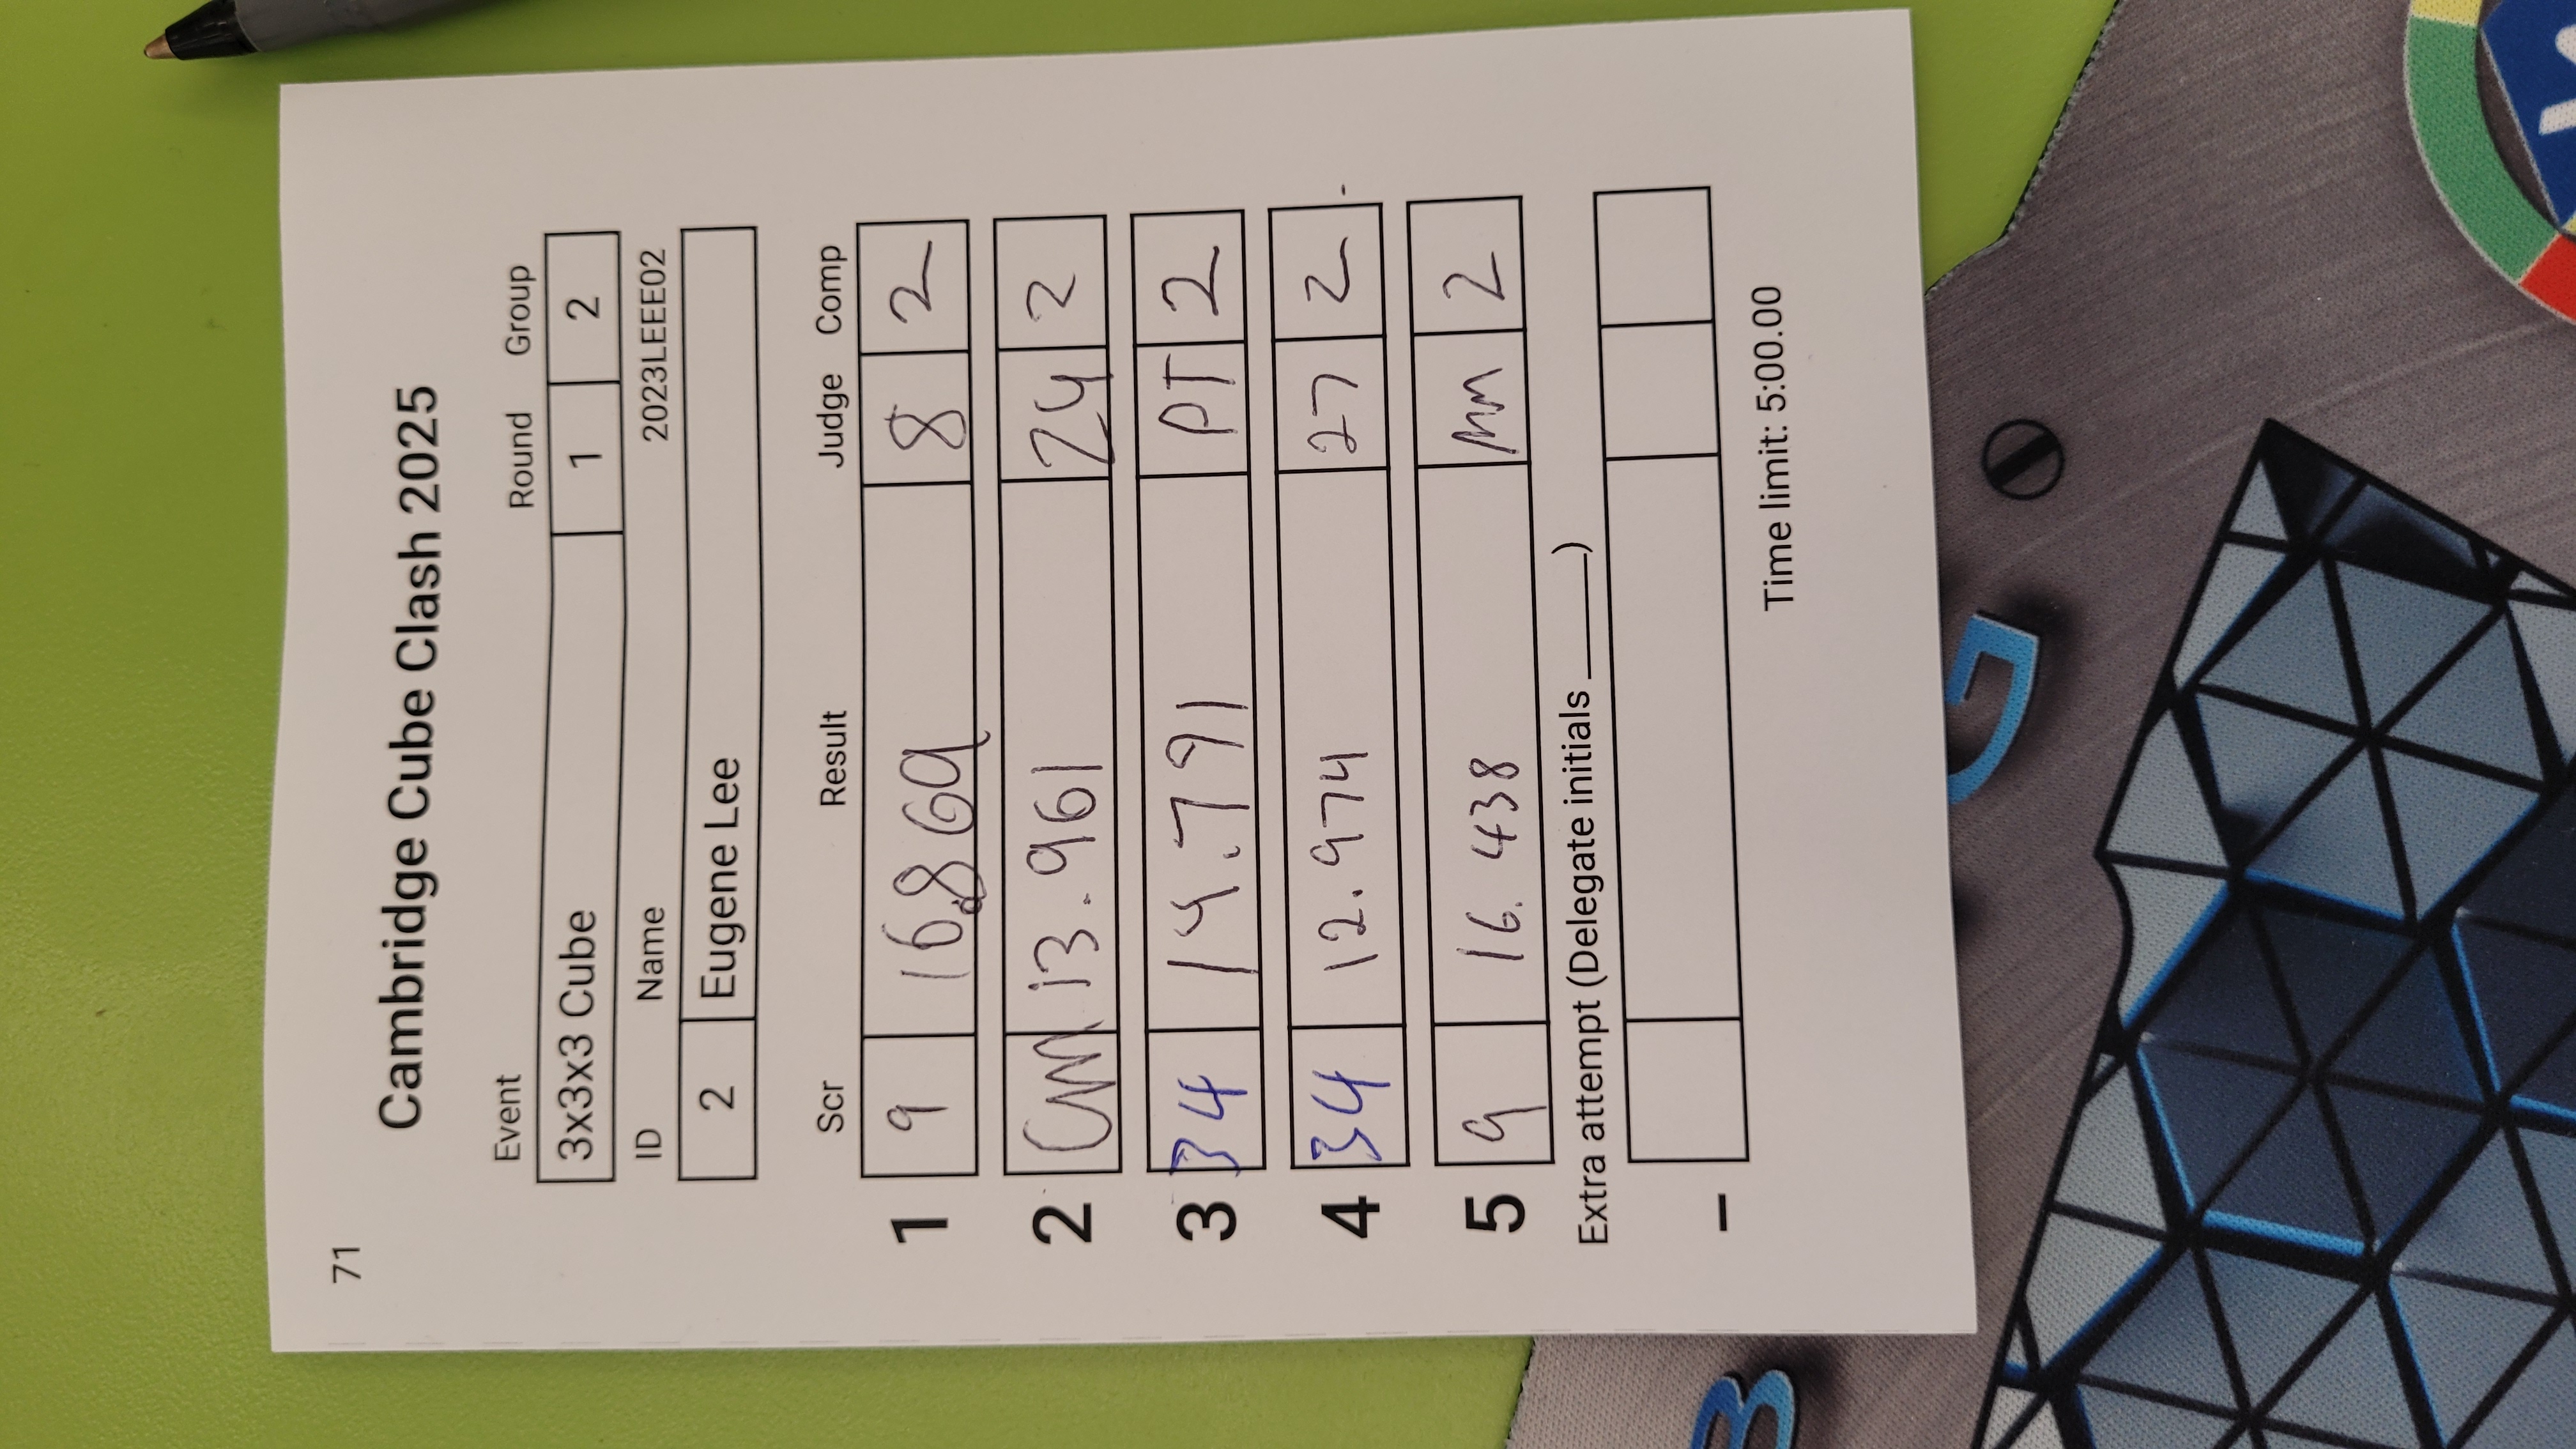 71
Cambridge Cube Clash 2025
Event Round Group
3x3x3 Cube 1 2
ID Name 2023LEEE02
2 Eugene Lee
Scr Result Judge Comp
1 9 16.869 8 2
2 CM 13.961 24 2
3 34 14.791 PT 2
4 34 12.974 27 2
5 9 16.438 MM 2
Extra attempt (Delegate initials ______)
–
Time limit: 5:00.00
G